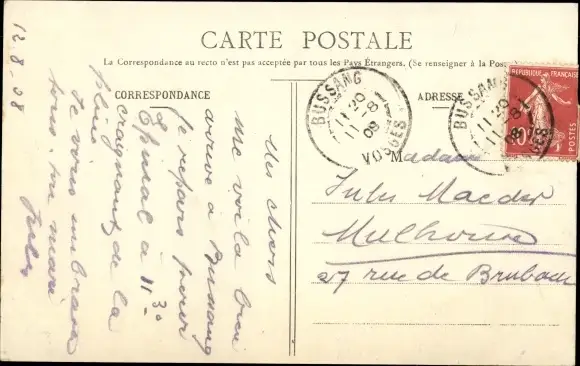 CARTE POSTALE
La Correspondance au recto n'est pas acceptée par tous les Pays Étrangers. (Se renseigner à la Poste)
CORRESPONDANCE
ADRESSE
BUSSANG
11 20
11 - 8
08
VOSGES
BUSSANG
11 20
11 - 8
08
VOSGES
RÉPUBLIQUE FRANÇAISE
10
POSTES
12.8.08
Mes chers
Me voilà bien
arrivé à Bussang
Je repars pour
Epinal à 11 3°
craignant de la
pluie
Je vous embrasse
tous. Ton mari
Jules
Madame
Jules Maeder
Mulhouse
27 rue de Brubach